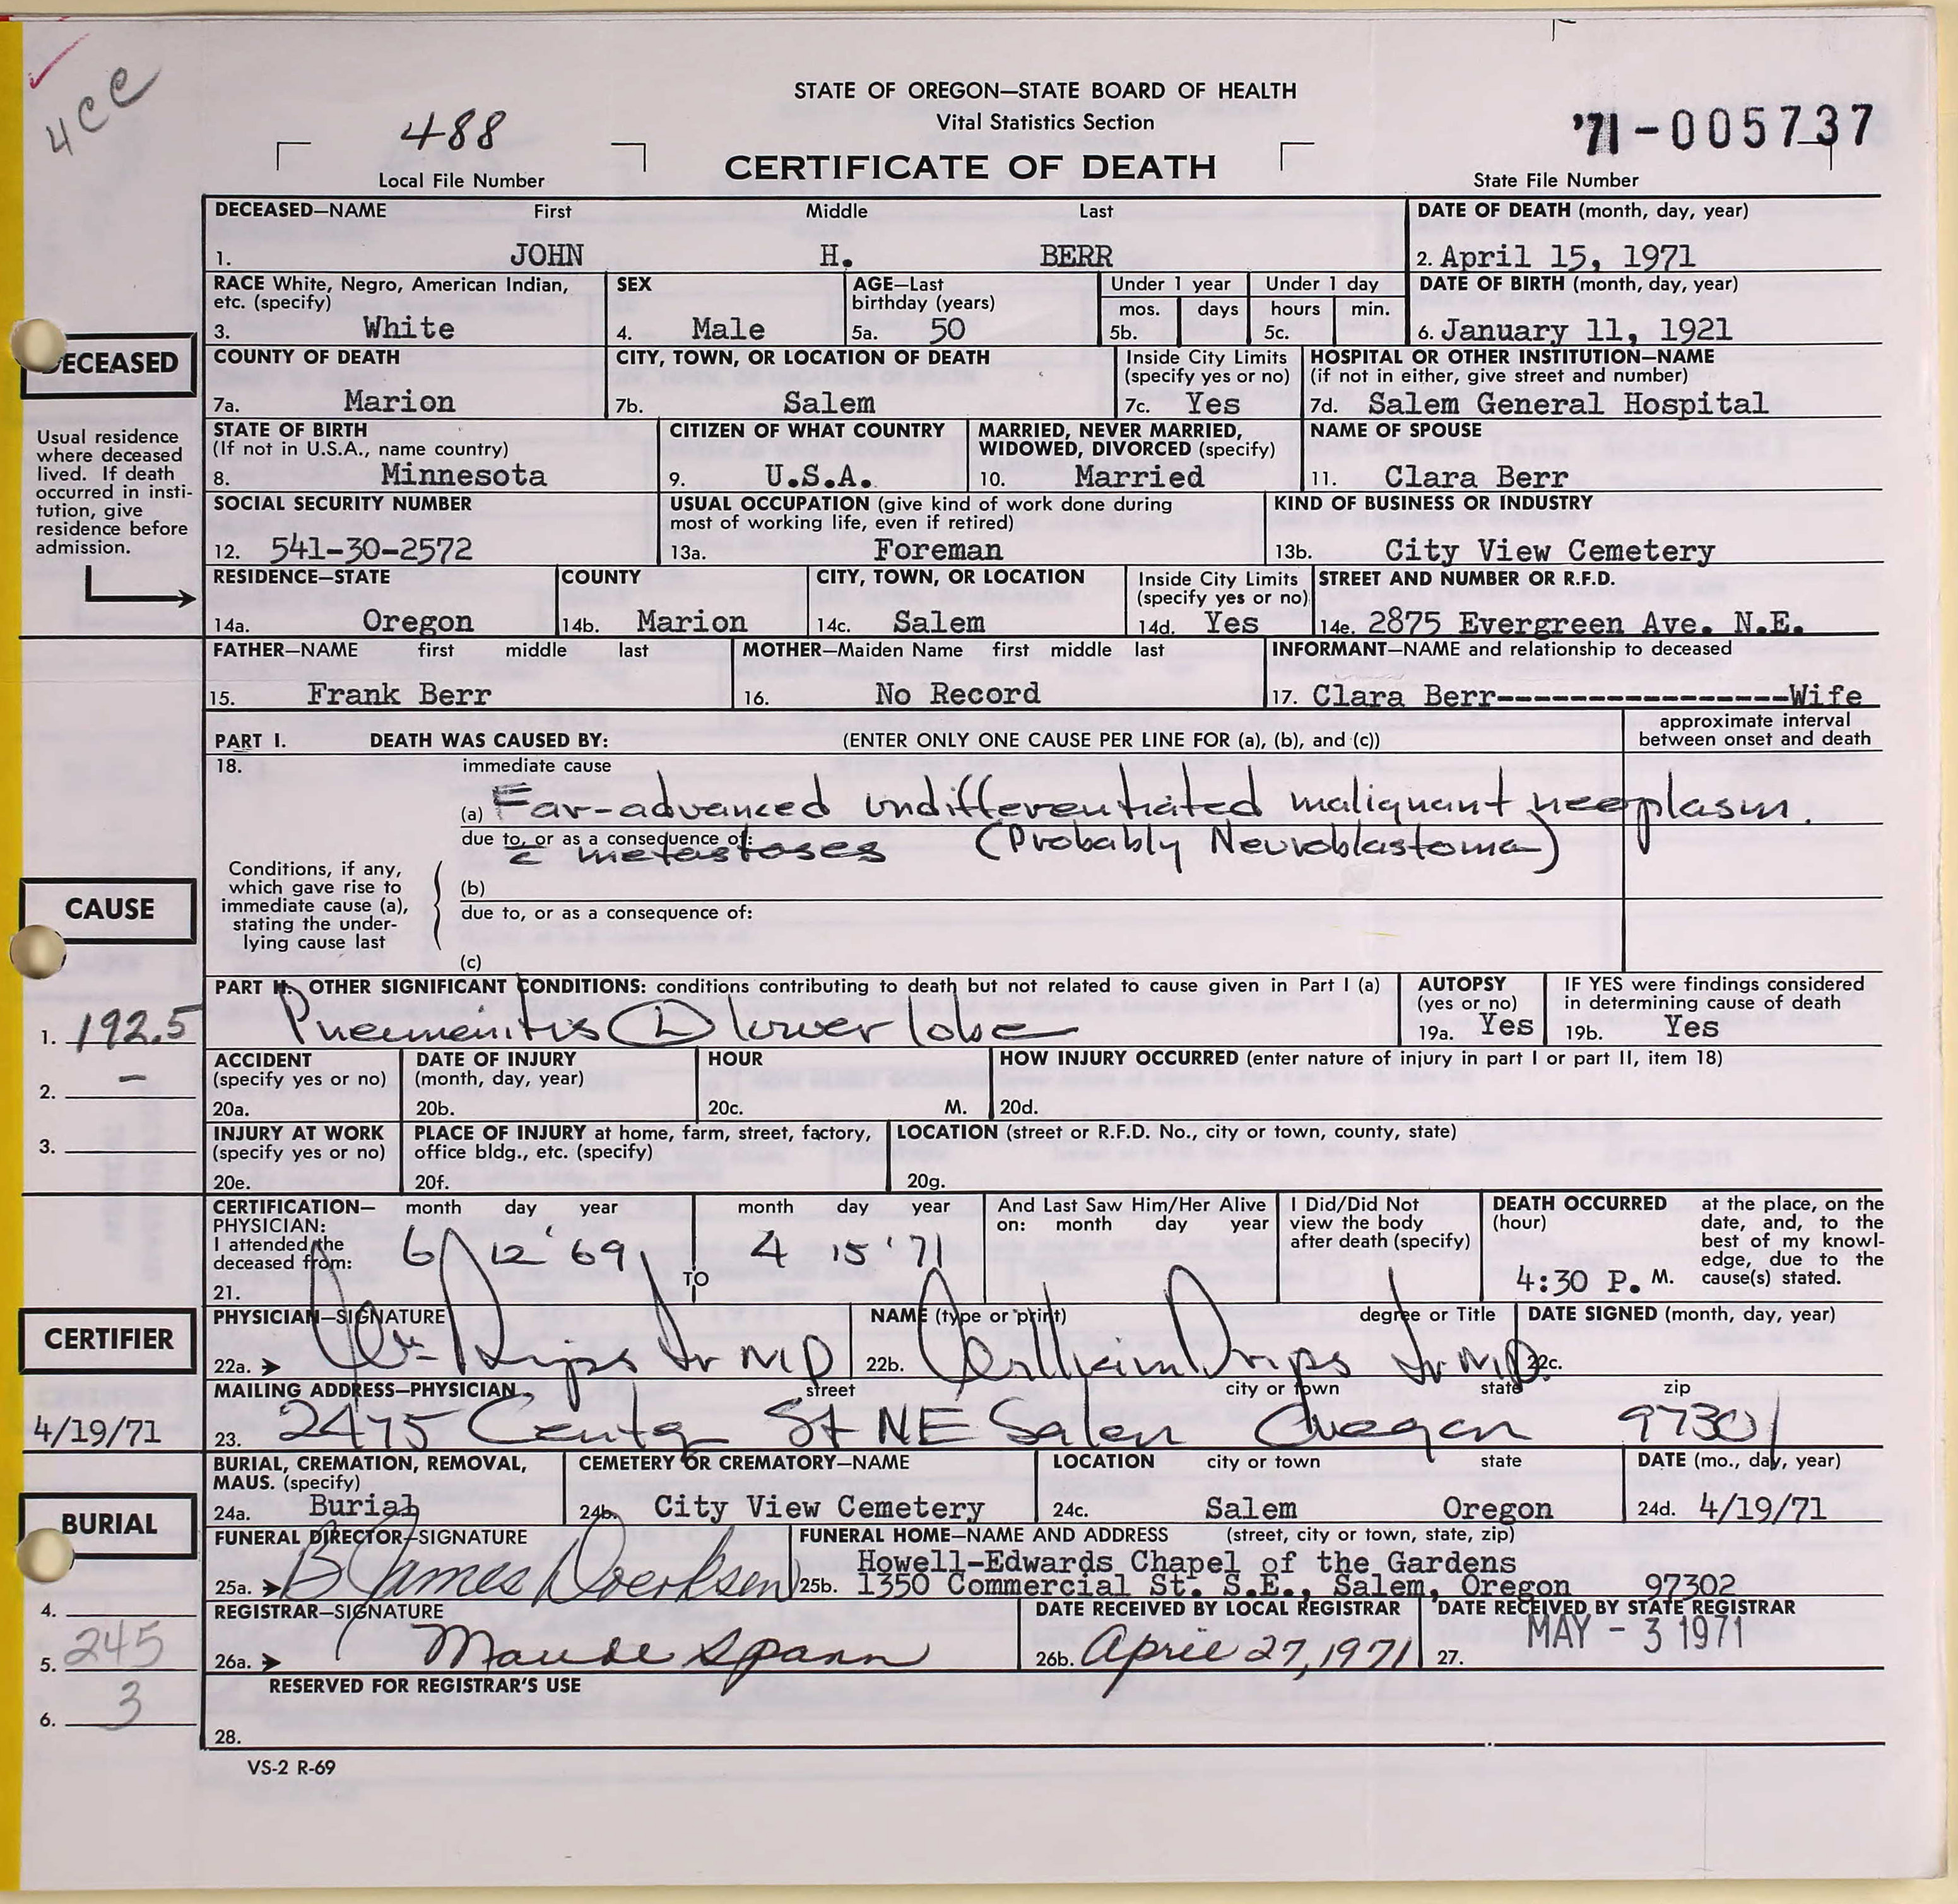 4cc
STATE OF OREGON—STATE BOARD OF HEALTH
Vital Statistics Section
488
'71-005737
Local File Number
CERTIFICATE OF DEATH
State File Number
DECEASED—NAME First Middle Last
DATE OF DEATH (month, day, year)
1. JOHN H. BERR
2. April 15, 1971
RACE White, Negro, American Indian, etc. (specify)
3. White
SEX
4. Male
AGE—Last birthday (years)
5a. 50
Under 1 year
mos. days
5b.
Under 1 day
hours min.
5c.
DATE OF BIRTH (month, day, year)
6. January 11, 1921
DECEASED
COUNTY OF DEATH
7a. Marion
CITY, TOWN, OR LOCATION OF DEATH
7b. Salem
Inside City Limits (specify yes or no)
7c. Yes
HOSPITAL OR OTHER INSTITUTION—NAME
(if not in either, give street and number)
7d. Salem General Hospital
Usual residence
where deceased
lived. If death
occurred in insti-
tution, give
residence before
admission.
STATE OF BIRTH
(If not in U.S.A., name country)
8. Minnesota
CITIZEN OF WHAT COUNTRY
9. U.S.A.
MARRIED, NEVER MARRIED,
WIDOWED, DIVORCED (specify)
10. Married
NAME OF SPOUSE
11. Clara Berr
SOCIAL SECURITY NUMBER
12. 541-30-2572
USUAL OCCUPATION (give kind of work done during
most of working life, even if retired)
13a. Foreman
KIND OF BUSINESS OR INDUSTRY
13b. City View Cemetery
RESIDENCE—STATE
14a. Oregon
COUNTY
14b. Marion
CITY, TOWN, OR LOCATION
14c. Salem
Inside City Limits
(specify yes or no)
14d. Yes
STREET AND NUMBER OR R.F.D.
14e. 2875 Evergreen Ave. N.E.
FATHER—NAME first middle last
15. Frank Berr
MOTHER—Maiden Name first middle last
16. No Record
INFORMANT—NAME and relationship to deceased
17. Clara Berr----------------Wife
PART I. DEATH WAS CAUSED BY: (ENTER ONLY ONE CAUSE PER LINE FOR (a), (b), and (c))
approximate interval
between onset and death
18. immediate cause
(a) Far-advanced undifferentiated malignant neoplasm.
due to, or as a consequence of:
c̄ metastases (Probably Neuroblastoma)
CAUSE
Conditions, if any,
which gave rise to
immediate cause (a),
stating the under-
lying cause last
(b)
due to, or as a consequence of:
(c)
PART II. OTHER SIGNIFICANT CONDITIONS: conditions contributing to death but not related to cause given in Part I (a)
Pneumonitis Ⓛ lower lobe
AUTOPSY
(yes or no)
19a. Yes
IF YES were findings considered
in determining cause of death
19b. Yes
1. 192.5
2. –
3.
ACCIDENT
(specify yes or no)
20a.
DATE OF INJURY
(month, day, year)
20b.
HOUR
20c. M.
HOW INJURY OCCURRED (enter nature of injury in part I or part II, item 18)
20d.
INJURY AT WORK
(specify yes or no)
20e.
PLACE OF INJURY at home, farm, street, factory,
office bldg., etc. (specify)
20f.
LOCATION (street or R.F.D. No., city or town, county, state)
20g.
CERTIFICATION—
PHYSICIAN:
I attended the
deceased from:
21.
month day year
6 12 '69
TO
month day year
4 15 '71
And Last Saw Him/Her Alive
on: month day year
I Did/Did Not
view the body
after death (specify)
DEATH OCCURRED
(hour)
4:30 P. M.
at the place, on the
date, and, to the
best of my knowl-
edge, due to the
cause(s) stated.
CERTIFIER
PHYSICIAN—SIGNATURE
22a. Wm Drips Jr MD
NAME (type or print) degree or Title
22b. William Drips Jr MD
DATE SIGNED (month, day, year)
22c.
4/19/71
MAILING ADDRESS—PHYSICIAN street city or town state zip
23. 2475 Center St NE Salem Oregon 97301
BURIAL
BURIAL, CREMATION, REMOVAL,
MAUS. (specify)
24a. Burial
CEMETERY OR CREMATORY—NAME
24b. City View Cemetery
LOCATION city or town state
24c. Salem Oregon
DATE (mo., day, year)
24d. 4/19/71
FUNERAL DIRECTOR—SIGNATURE
25a. B James Doerksen
FUNERAL HOME—NAME AND ADDRESS (street, city or town, state, zip)
Howell-Edwards Chapel of the Gardens
25b. 1350 Commercial St. S.E., Salem, Oregon 97302
4.
245
5.
3
6.
REGISTRAR—SIGNATURE
26a. Maude Spann
DATE RECEIVED BY LOCAL REGISTRAR
26b. April 27, 1971
DATE RECEIVED BY STATE REGISTRAR
27. MAY - 3 1971
RESERVED FOR REGISTRAR'S USE
28.
VS-2 R-69